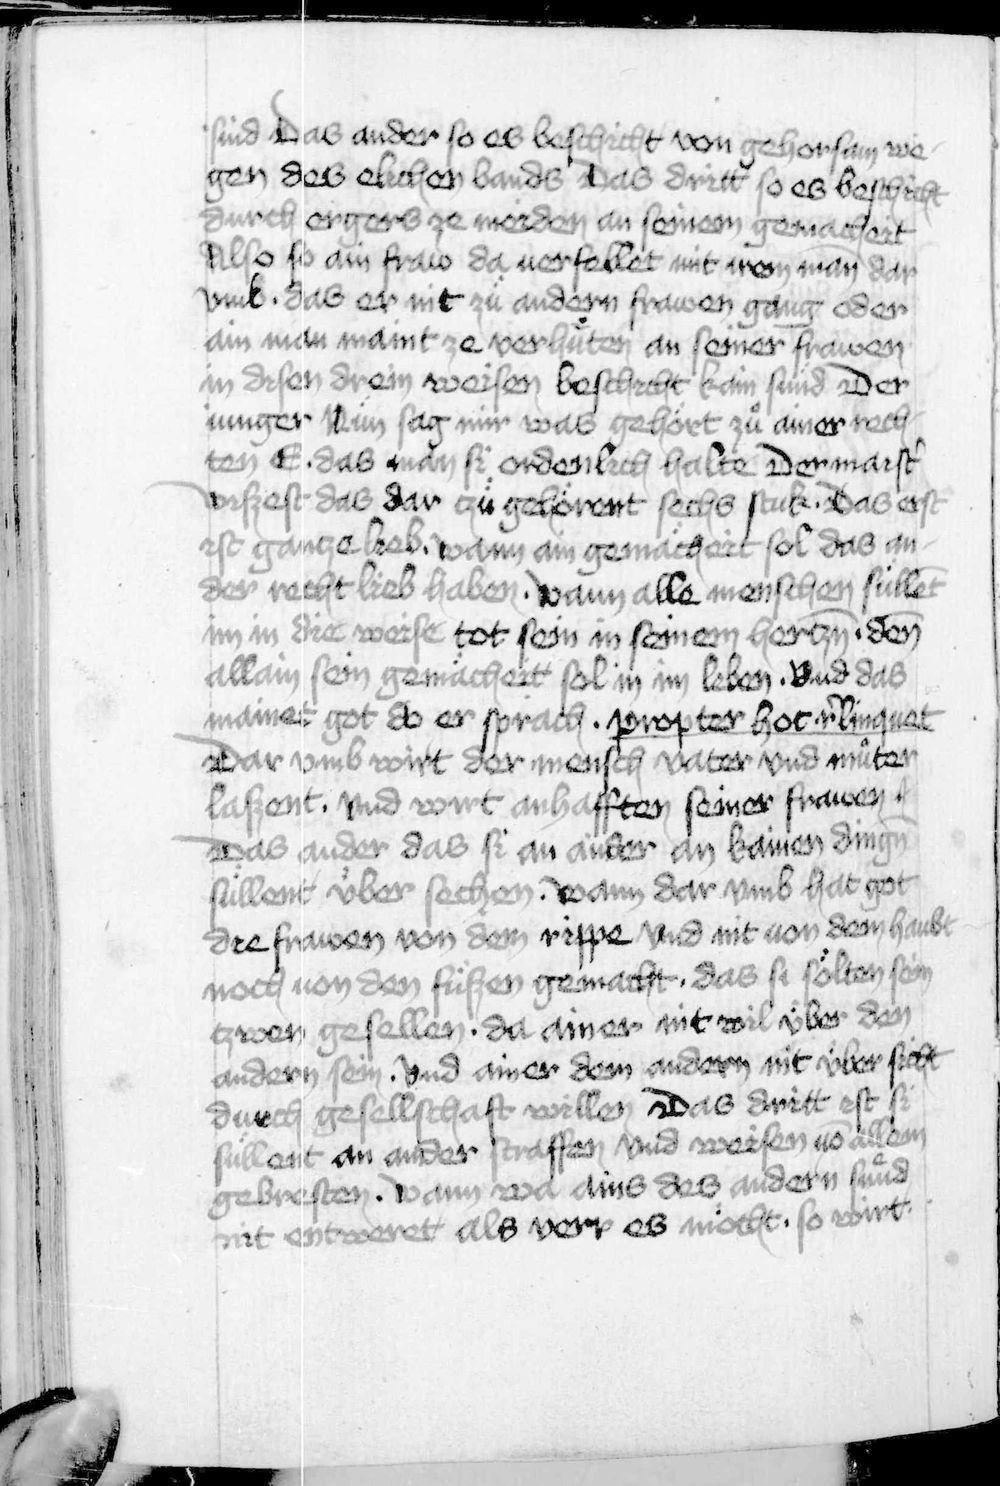 sünd Das ander so es beschicht von gehorsam we-
gen des elichen bands Das dritt so es beschicht
durch ergers ze meiden an seinem gemächeit
Also so ain fraw da verfellet mit irem man dar
vmb . das er nit zů andern frawen gang oder
ain man maint ze verhüten an seiner frawen
in disen drein weisen beschicht kain sünd Der
iunger Nun sag mir was gehört zů ainer rech-
ten E . das man si ordenlich halte Der maist̛
vrszest das dar tzů gehörent sechs stuk . Das erst
ist gantze lieb . wann ain gemächeit sol das an-
der recht lieb haben . wann alle menschen süllet
im in die weise tot sein in seinem hertzn̄ . den̄
allain sein gemächeit sol in im leben . Vnd das
mainet got do er sprach . propter hoc r̄linquet
Dar vmb wirt der mensch vater vnd můter
laszent . vnd wirt anhafften seiner frawen .
Das ander das si an ander an kainen dingn̄
süllent über sechen . wann dar vmb hat got
die frawen von dem rippe vnd nit von dem haubt
noch von den füszen gemacht . das si sölten sein
tzwen gesellen . da ainer nit wil über den
andern sein . Vnd ainer dem andern nit über sicht
durch gesellschaft willen Das dritt ist si
süllent an ander straffen vnd weisen vō allem
gebresten . wann wa ains des andern sünd
nit entweret als verr es möcht . so wirt